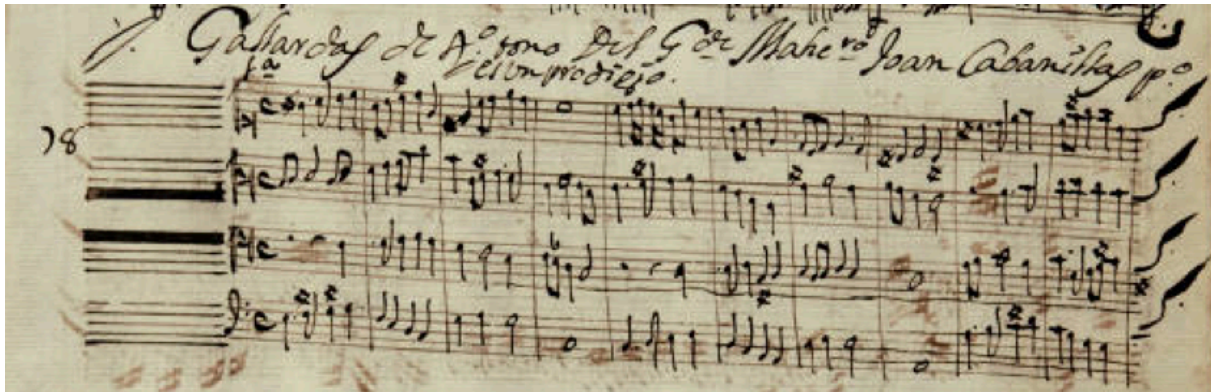 Gallardas de A.º tono Del G.de Mahe.ro Joan Cabanillas p.º
1.ª es un prodigio.
78